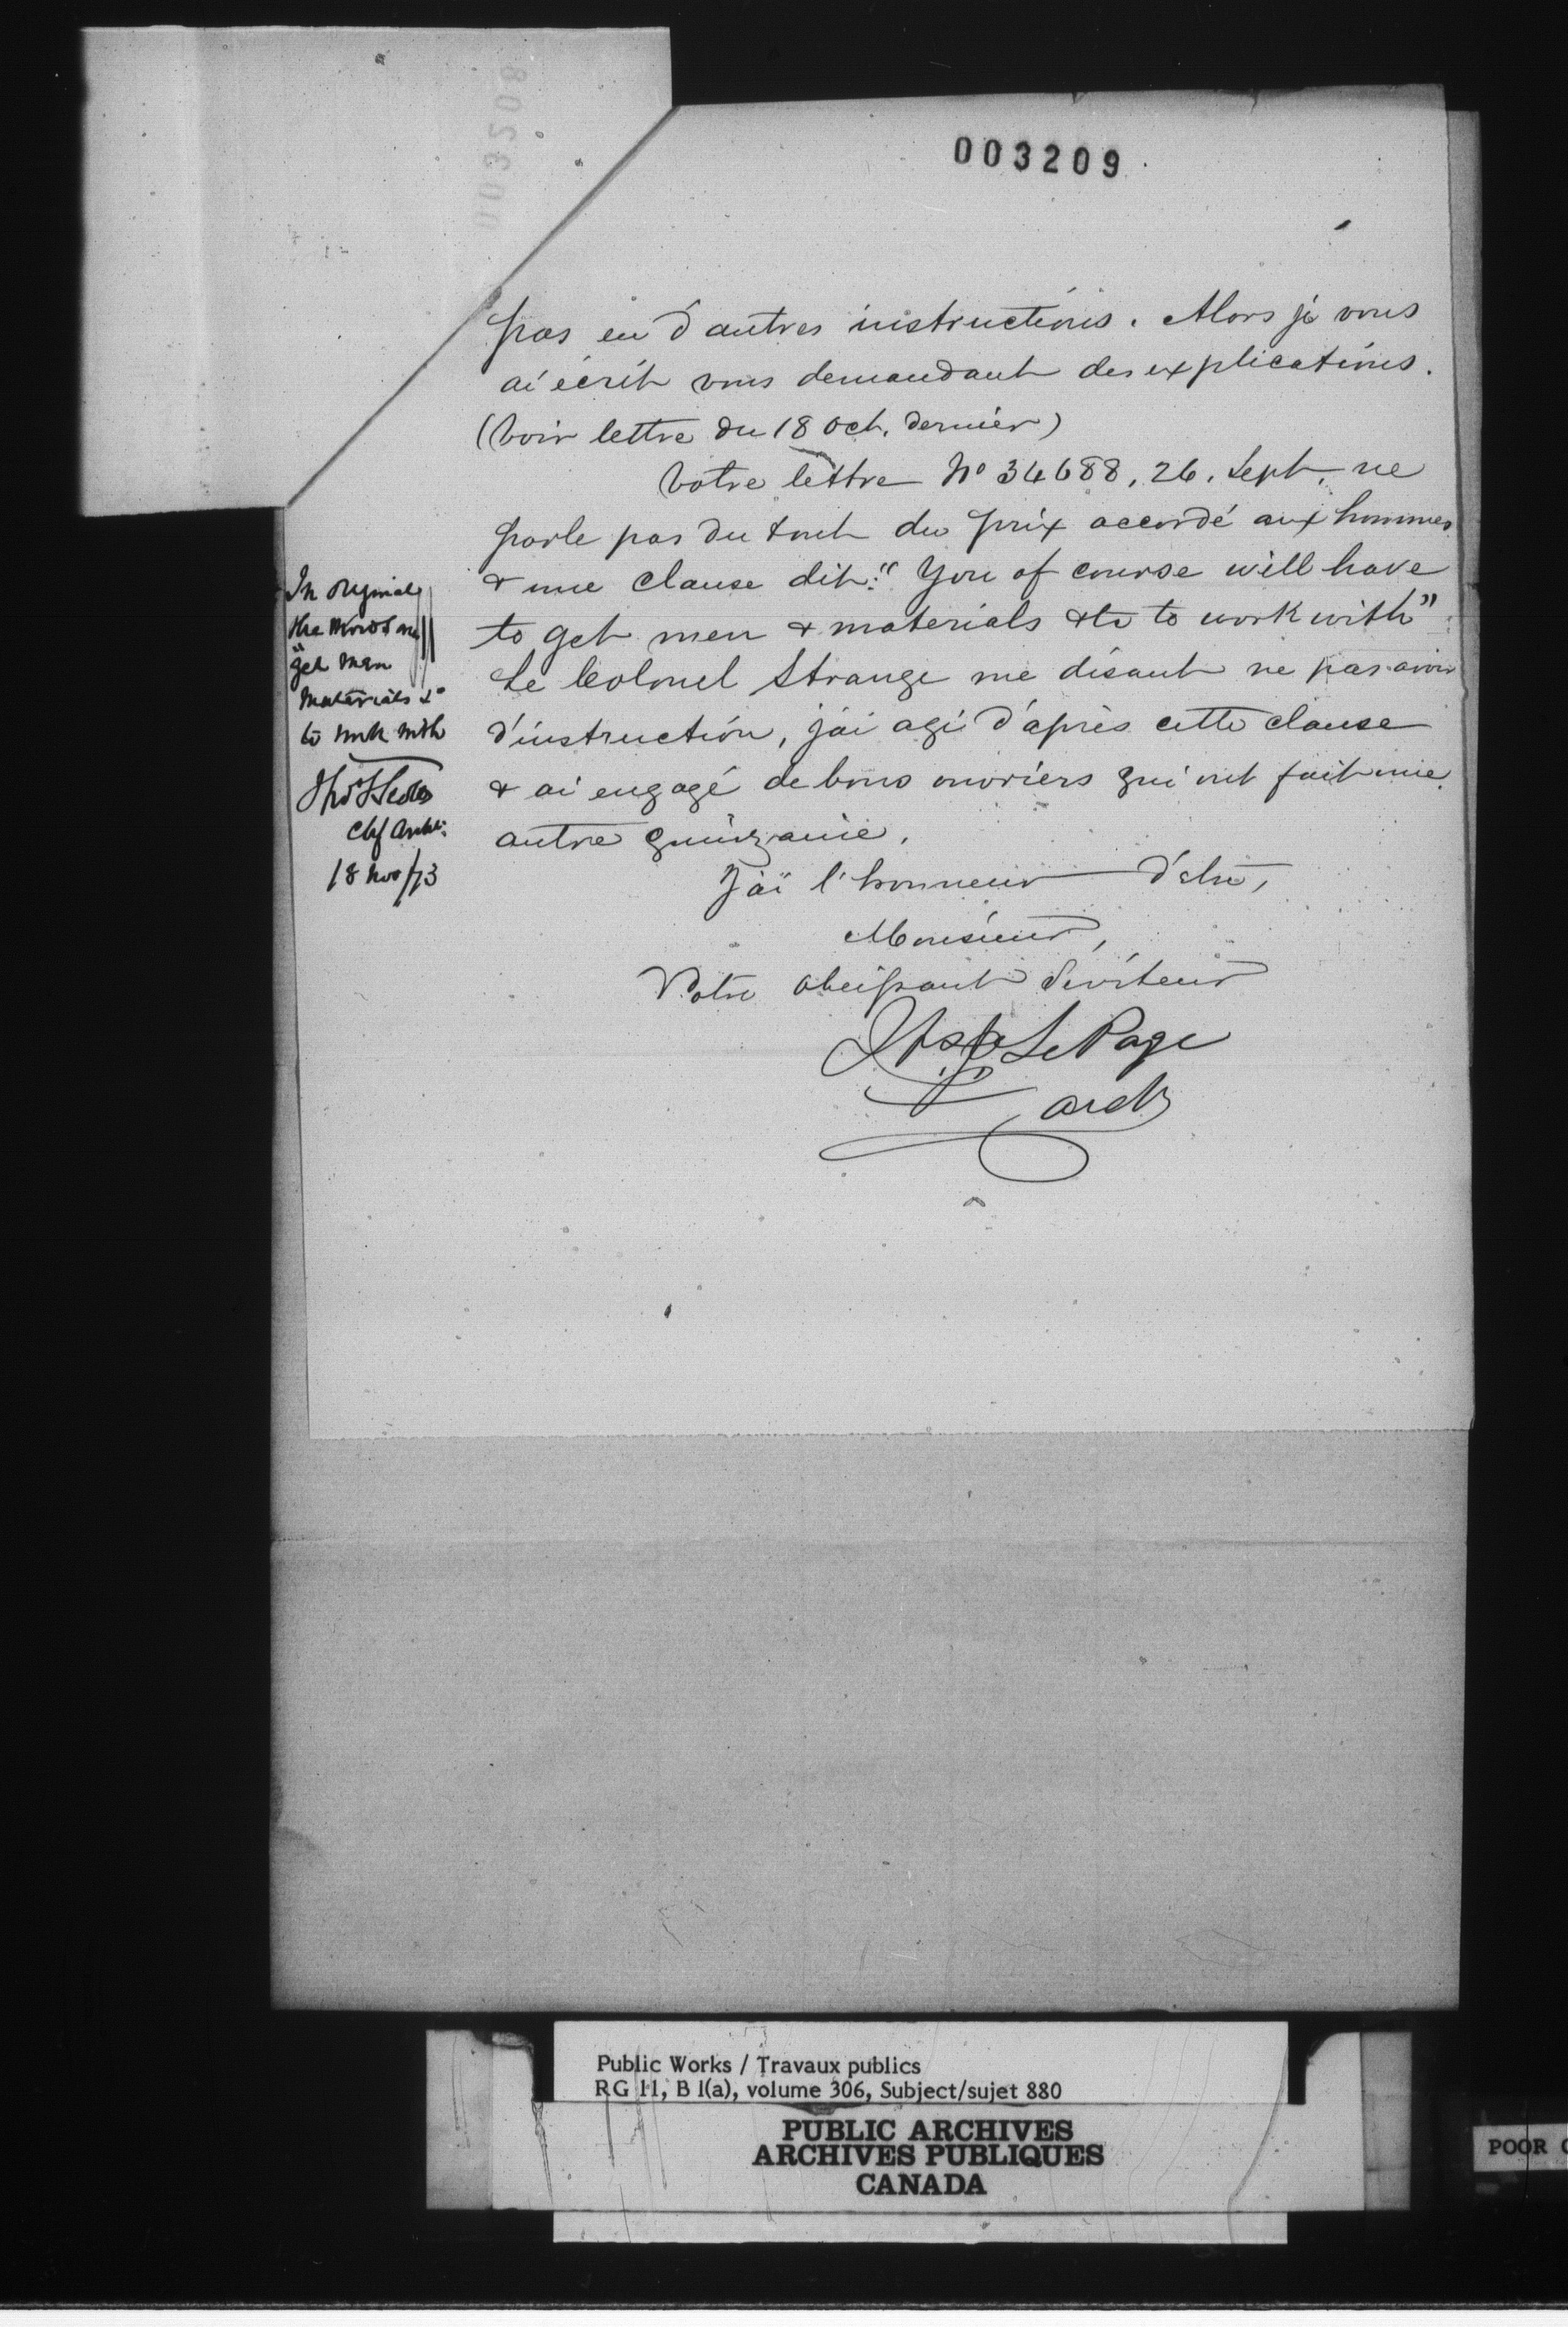 003208
003209
pas eu d'autres instructions. Alors je vous
ai écrit vous demandant des explications.
(Voir lettre du 18 oct. dernier)
Votre lettre No 34688, 26. Sept. ne
parle pas du tout du prix accordé aux hommes
& une clause dit: "You of course will have
to get men & materials &tc to work with"
Le Colonel Strange me disant ne pas avoir
d'instruction, j'ai agi d'après cette clause
& ai engagé de bons ouvriers qui ont fait une
autre quinzaine.
J'ai l'honneur d'etre,
Monsieur,
Votre obeissant serviteur
LePage
arch
In original
the words are
"get men
materials &c
to work with
Chf Archt:
18 Nov/73
Public Works / Travaux publics
RG 11, B 1(a), volume 306, Subject/sujet 880
PUBLIC ARCHIVES
ARCHIVES PUBLIQUES
CANADA
POOR